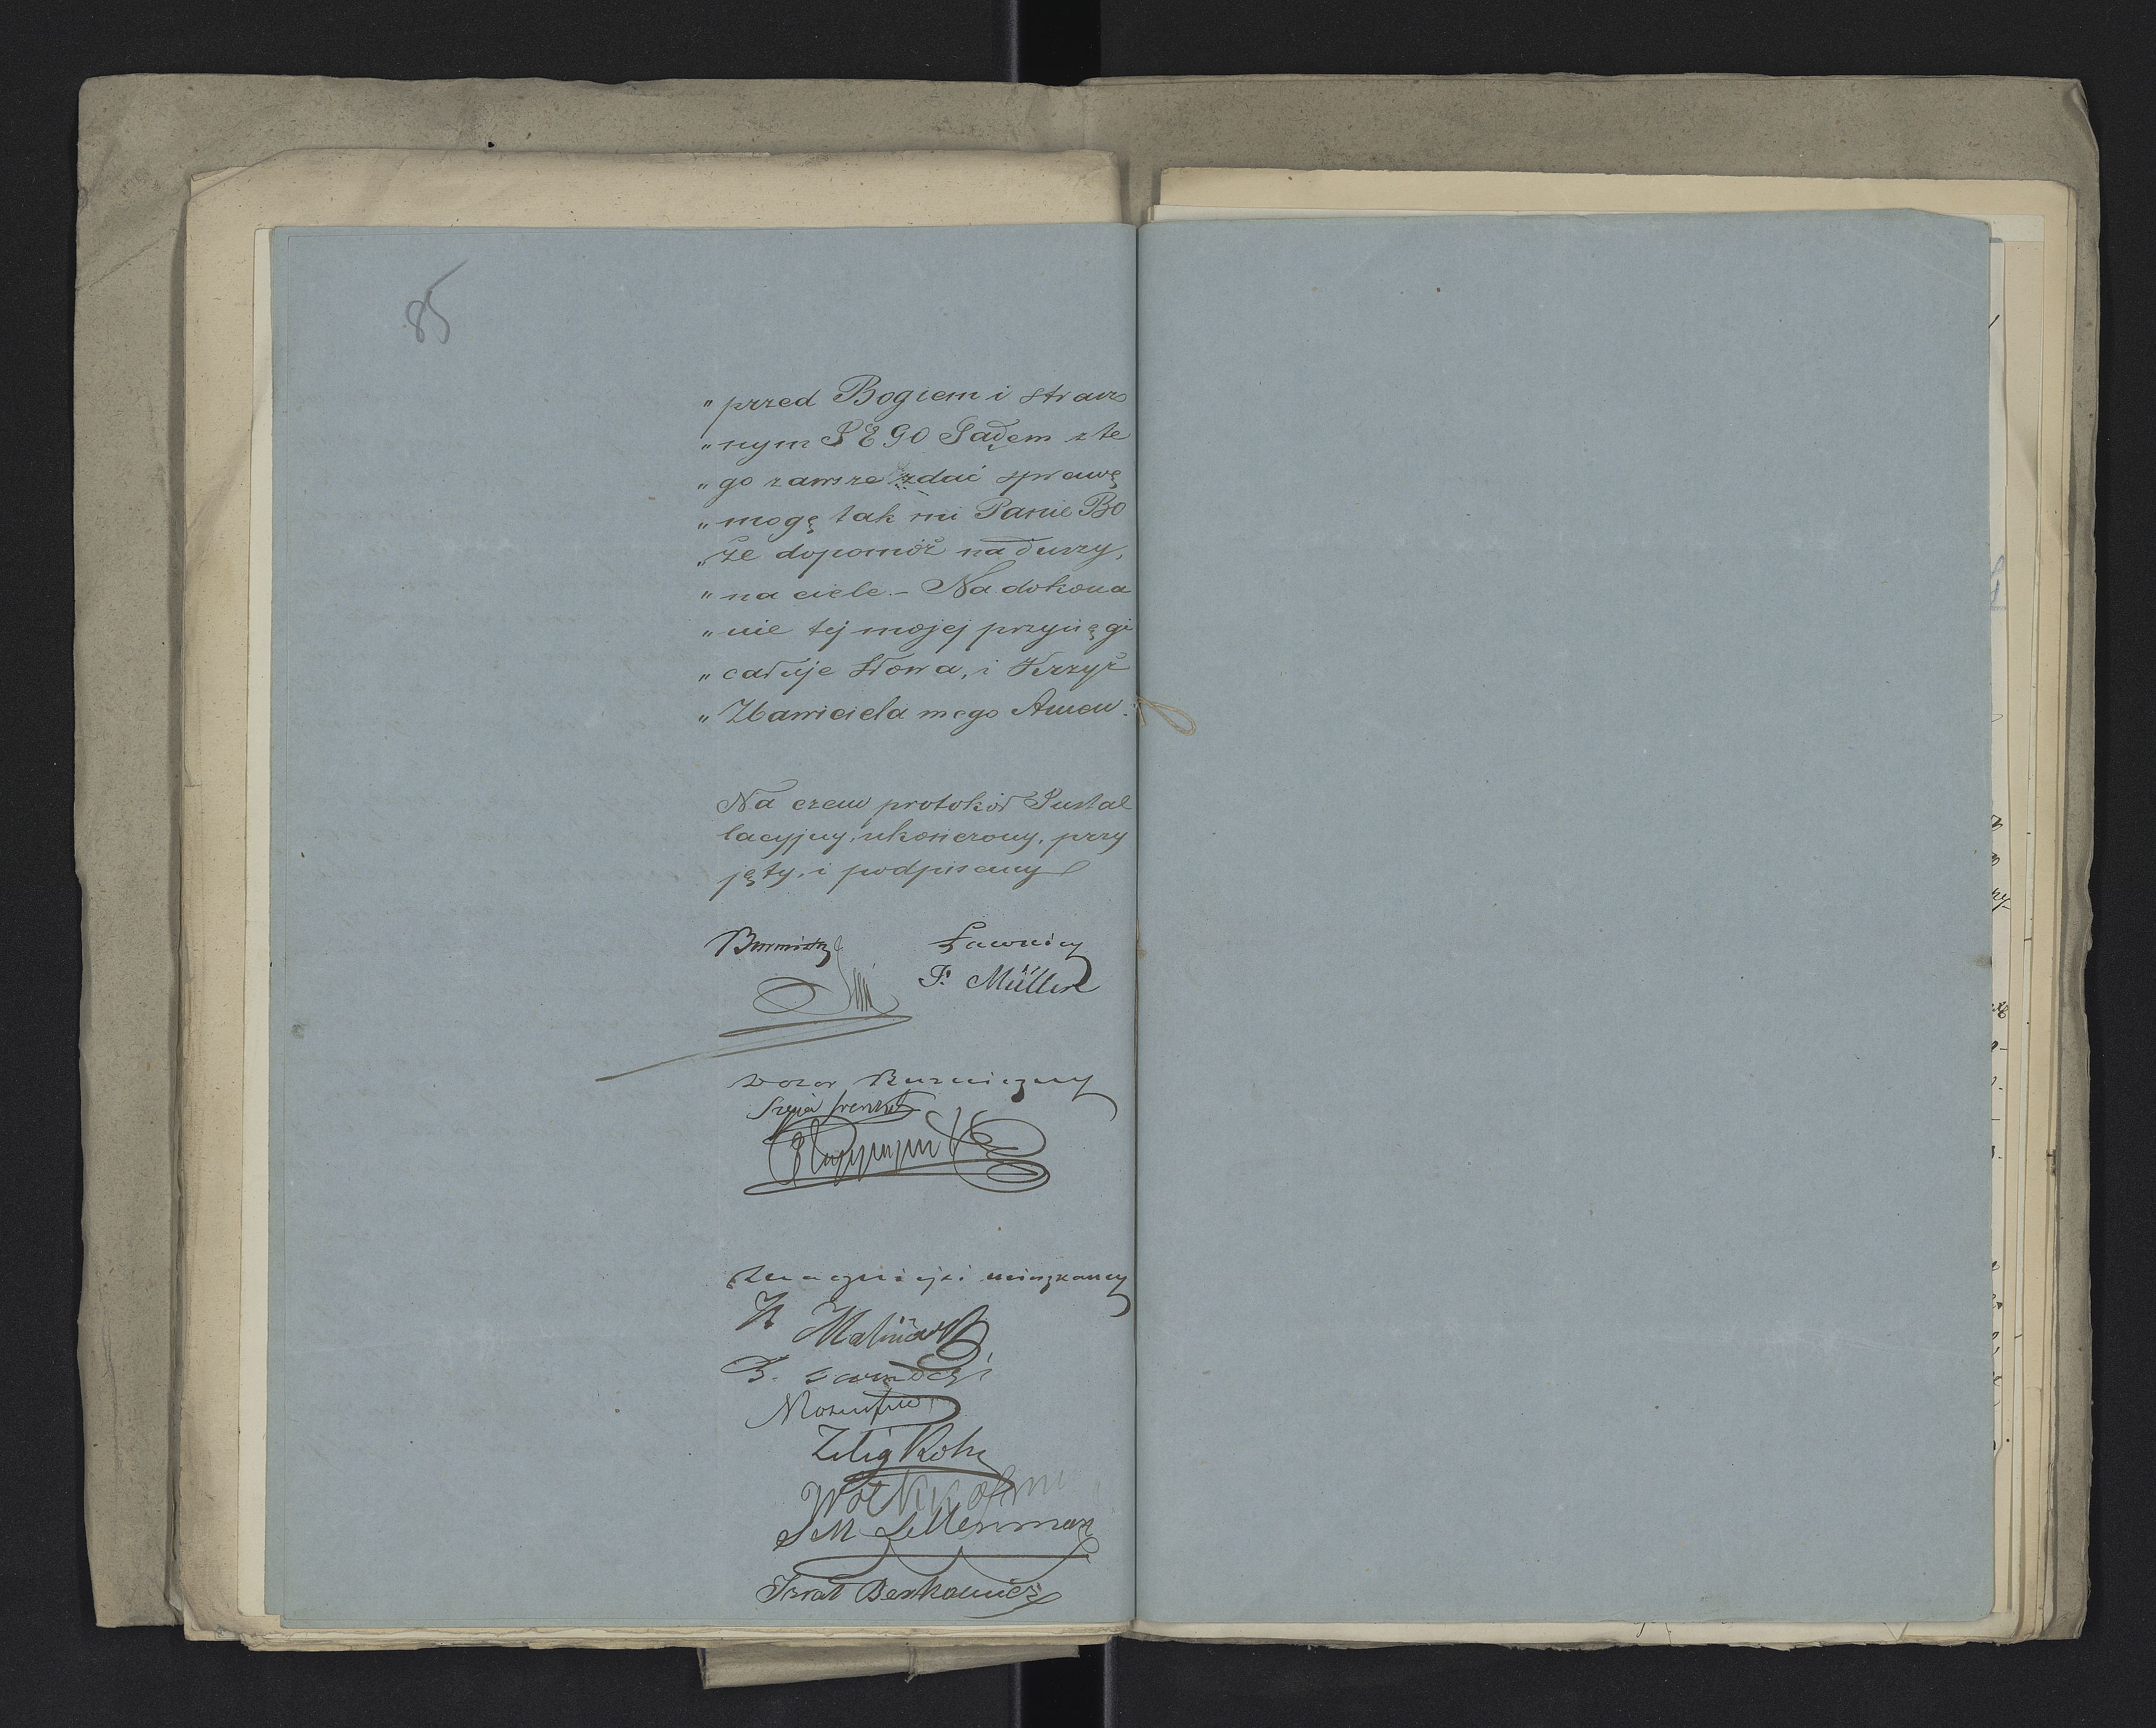 85
„ przed Bogiem i strasz
„ nym JEGO Sądem z te
„ go zawsze zdać sprawę
„ mogę tak mi Panie Bo
„ że dopomóż na duszy,
„ na ciele. – Na dokona
„ nie tej mojej przysięgi
„ całuje Słowa, i Krzyż
„ Zbawiciela mego Amen.
Na czem protokół Instal
lacyjny, ukończony, przy
jęty, i podpisany
Burmistrz
Ławnicy
F. Müller
Dozor Bużniczny
Znaczniejsi mieszkancy
Zelig Kohn
S M Lellenman
Israel Berkowicz